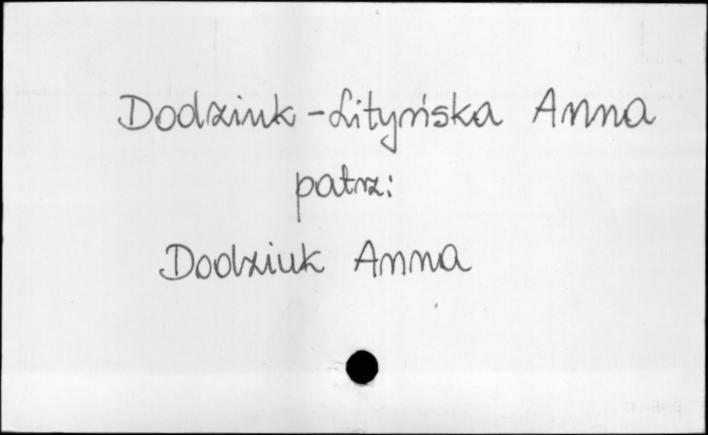 Dodziuk-Lityńska Anna
patrz:
Dodziuk Anna